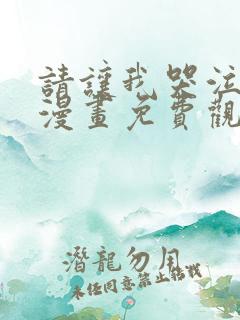 請讓我哭泣
漫畫免費觀
潛龍勿用
未经同意禁止转载